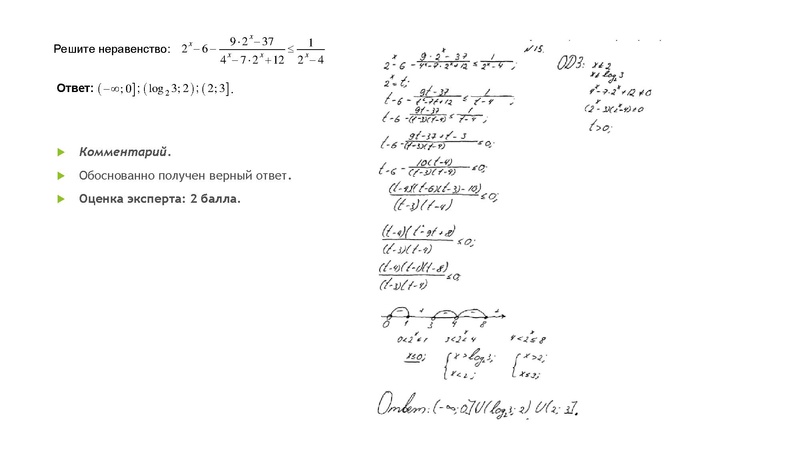 Решите неравенство: 2^x − 6 − (9·2^x − 37)/(4^x − 7·2^x + 12) ≤ 1/(2^x − 4)
Ответ: (−∞; 0]; (log₂3; 2); (2; 3].
Комментарий.
Обоснованно получен верный ответ.
Оценка эксперта: 2 балла.
№15.
2^x − 6 − (9·2^x − 37)/(4^x − 7·2^x + 12) ≤ 1/(2^x − 4);
2^x = t;
t − 6 − (9t − 37)/(t² − 7t + 12) ≤ 1/(t − 4);
t − 6 − (9t − 37)/((t−3)(t−4)) ≤ 1/(t − 4);
t − 6 − (9t − 37 + t − 3)/((t−3)(t−4)) ≤ 0;
t − 6 − 10(t−4)/((t−3)(t−4)) ≤ 0;
(t−4)((t−6)(t−3)−10)/((t−3)(t−4)) ≤ 0;
(t−4)(t² − 9t + 8)/((t−3)(t−4)) ≤ 0;
(t−4)(t−1)(t−8)/((t−3)(t−4)) ≤ 0;
0 1 3 4 8
0<2^x≤1 3<2^x<4 4<2^x≤8
x≤0; { x>log₂3; { x>2;
x<2; x≤3;
Ответ: (−∞; 0] U (log₂3; 2) U (2; 3].
ОДЗ: x≠2
x≠log₂3
4^x − 7·2^x + 12 ≠ 0
(2^x − 3)(2^x − 4) ≠ 0
t>0;